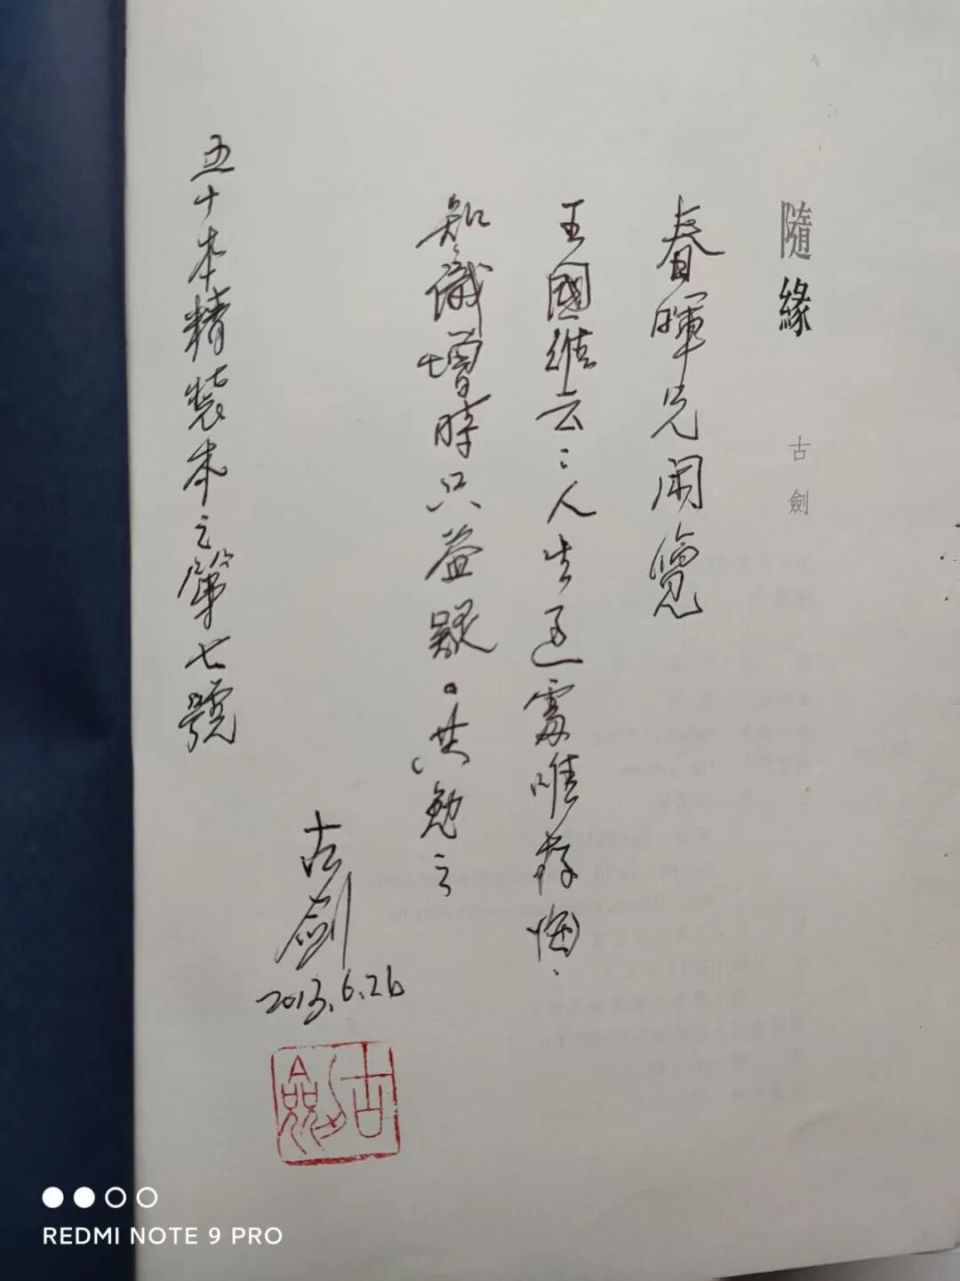 隨緣
古劍
春暉兄閑覽
王國維云：人生過處唯存悔，
知識增時只益疑。共勉之
古劍
2013.6.26
古劍
五十本精裝本之第七號
REDMI NOTE 9 PRO